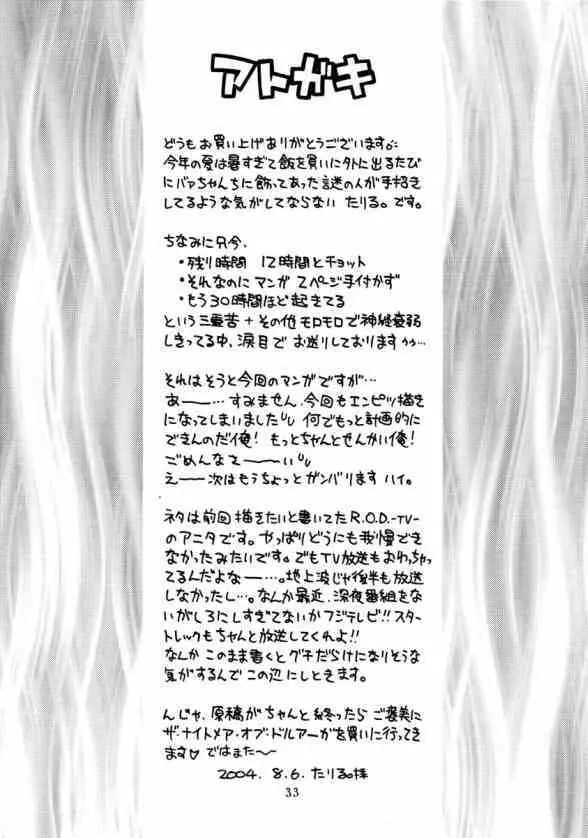 アトガキ
どうもお買い上げありがとうございます♪
今年の夏は暑すぎて飯を買いに外に出るたび
にバァちゃんちに飾ってあった謎の人が手招き
してるような気がしてならない たりる。です。
ちなみに只今、
・残り時間 12時間とチョット
・それなのに マンガ 2ページ手付かず
・もう30時間ほど起きてる
という三重苦+その他モロモロで神経衰弱
しきってる中、涙目で お送りしております
それはそうと今回のマンガですが…
あー…すみません、今回もエンピツ描き
になってしまいました 何でもっと計画的に
できんのだ俺! もっとちゃんとせんかい俺!
ごめんなさ――い
えー 次はもうちょっとガンバリます ハイ。
ネタは前回描きたいと書いてたR.O.D.-TV-
のアニタです。やっぱりどうにも我慢でき
なかったみたいです。でもTV放送もおわっちゃ
ってるんだよなー…。地上波じゃ後半も放送
しなかったし…。なんか最近、深夜番組をな
いがしろにしすぎてないかフジテレビ!!スター
トレックもちゃんと放送してくれよ!!
なんか このまま書くとグチだらけになりそうな
気がするんで この辺にしときます。
んじゃ、原稿がちゃんと終ったら ご褒美に
ザ・ナイトメア・オブ・ドルアーガを買いに行ってき
ます♡ ではまた〜
2004. 8.6. たりる。様
33